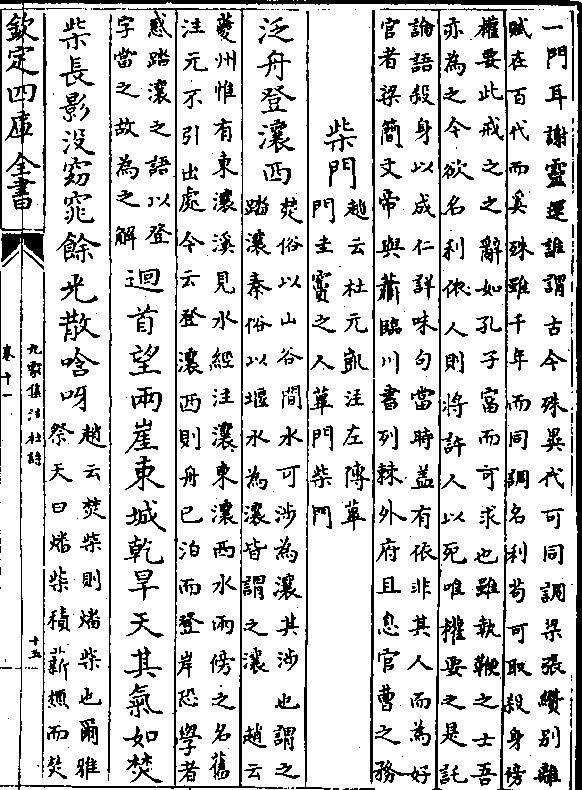 一門耳謝靈運誰謂古今殊異代可同調梁張纘別離
賦在百代而奚殊雖千年而同調名利苟可取殺身傍
權要此戒之之辭如孔子富而可求也雖執鞭之士吾
亦為之今欲名利依人則將許人以死唯權要之是託
論語殺身以成仁詳味句當時益有依非其人而為好
官者梁簡文帝與蕭臨川書列棘外府且息官曹之務
柴門
趙云杜元凱注左傳蓽
門圭竇之人蓽門柴門
泛舟登瀼西
焚俗以山谷間水可涉為瀼其涉也謂之
踏瀼秦俗以堰水為瀼皆謂之瀼 趙云
夔州惟有東瀼溪見水經注瀼東瀼西水兩傍之名舊
注元不引出處今云登瀼西則舟已泊而登岸恐學者
惑踏瀼之語以登
字當之故為之解
迴首望兩崖東城乾旱天其氣如焚
柴長影沒窈窕餘光散唅呀
趙云焚柴則燔柴也爾雅
祭天曰燔柴積薪類而焚
欽定四庫全書
九家集注杜詩
卷十一
十五